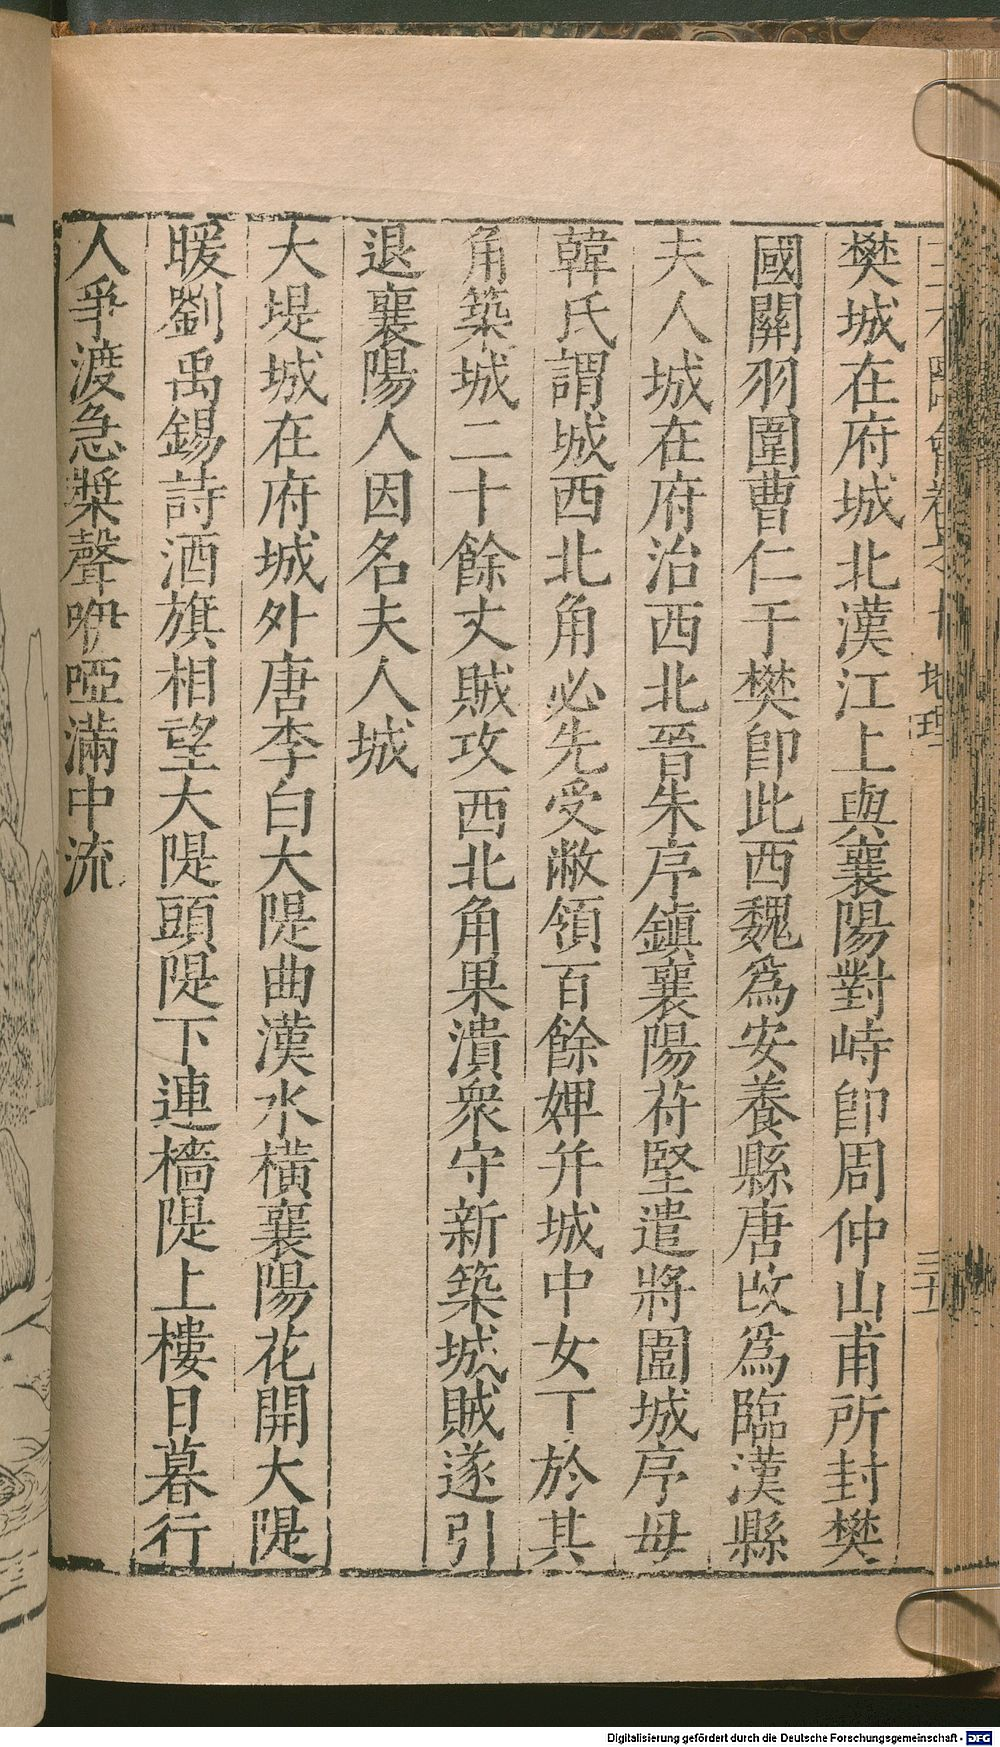 樊城在府城北漢江上與襄陽對峙卽周仲山甫所封樊
國關羽圍曹仁于樊卽此西魏爲安養縣唐改爲臨漢縣
夫人城在府治西北晉朱序鎮襄陽苻堅遣將圍城序母
韓氏謂城西北角必先受敝領百餘婢并城中女丁於其
角築城二十餘丈賊攻西北角果潰衆守新築城賊遂引
退襄陽人因名夫人城
大堤城在府城外唐李白大隄曲漢水橫襄陽花開大隄
暖劉禹錫詩酒旗相望大隄頭隄下連檣隄上樓日暮行
人爭渡急槳聲咿啞滿中流
地理
三十五
Digitalisierung gefördert durch die Deutsche Forschungsgemeinschaft - DFG